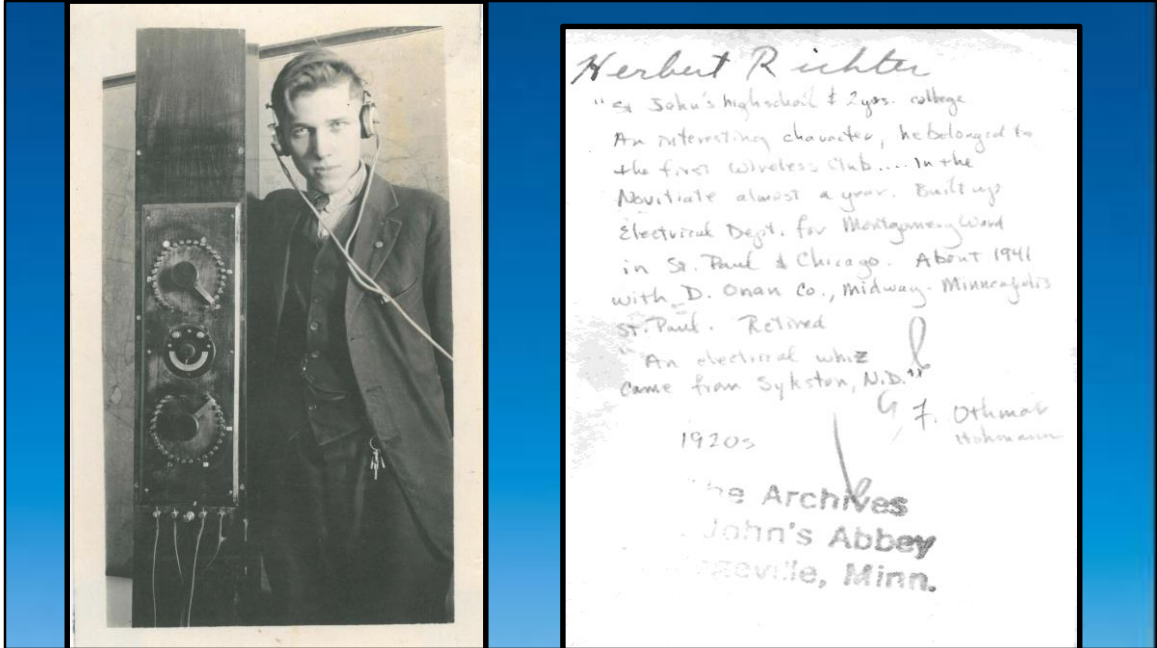 Herbert Richter
"St John's highschool & 2yrs. college
An interesting character, he belonged to
the first Wireless Club.... In the
Novitiate almost a year. Built up
Electrical Dept. for Montgomery Ward
in St. Paul & Chicago. About 1941
with D. Onan Co., Midway - Minneapolis
St. Paul. Retired
"An electrical whiz
came from Sykston, N.D."
F. Othmar
Hohmann
1920s
he Archives
John's Abbey
geville, Minn.